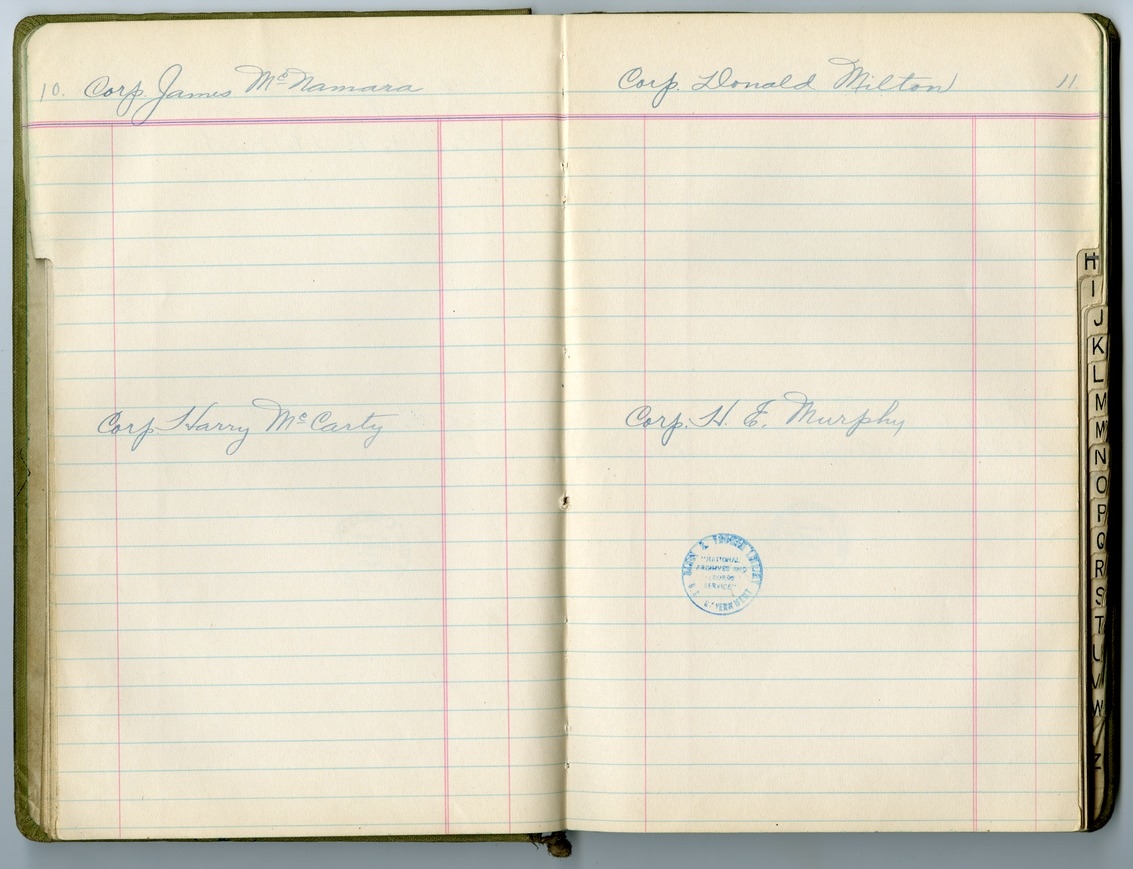 10. Corp. James McNamara
Corp. Harry McCarty
Corp. Donald Milton 11.
Corp. H. E. Murphy
HARRY S. TRUMAN LIBRARY
"NATIONAL
ARCHIVES AND
RECORDS
SERVICE"
U.S. GOVERNMENT
H
I
J
K
L
M
Mc
N
O
P
Q
R
S
T
U
V
W
Z